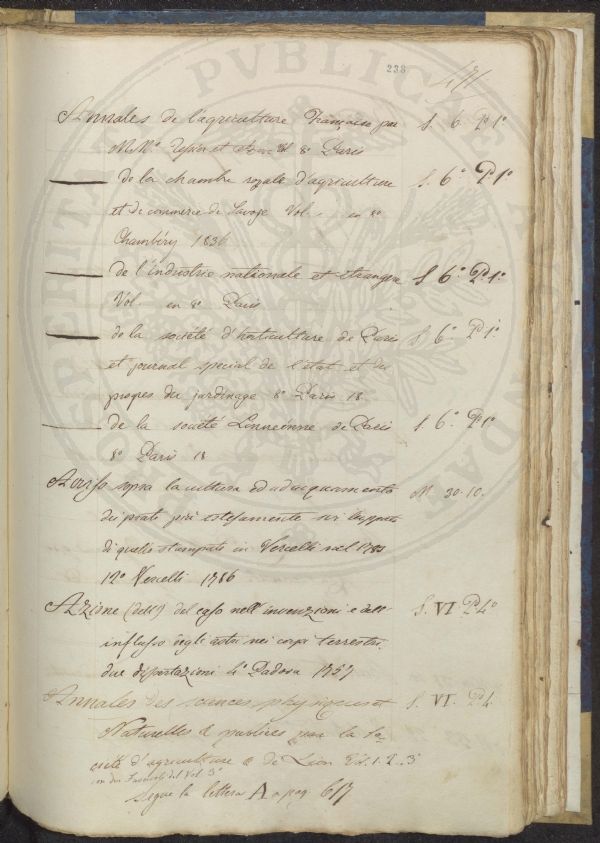 238
471
Annales de l'agriculture Française par S. 6. P. 1°
MM. Tessier et 8° Paris
de la chambre royale d'agriculture S. 6° P. 1°
et de commerce de Savoje Vol. en 8°
Chambéry 1836
de l'industrie nationale et étrangere S 6° P. 1°
Vol. en 8° Paris
de la société d'horticulture de Paris S. 6° P. 1°
et journal special de l'état et du
progres du jardinage 8° Paris 18
de la société Linneénne de Paris S. 6° P. 1°
8° Paris 18
Aviso sopra la cultura ed adacquamento M. 30. 10.
dei prati più estesamente
di quello stampato in Vercelli nel 1785
12° Vercelli 1786
Azione (dell') del caso nell'invenzioni e dell' S. VI. P. 4°
influsso degli astri nei corpi terrestri.
due disertazioni 4° Padova 1757
Annales des sciences physiques et S. VI. P. 4
Naturelles & publiées par la so
cieté d'agriculture & de Lion 1. 2. 3°
Fascicoli del Vol. 3°
Segue la lettera A a pag. 617
PVBLICAE